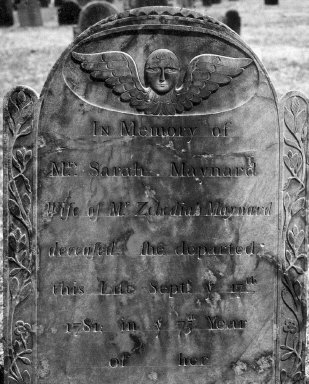 In Memory of
Mrs. Sarah Maynard
Wife of Mr Zebediah Maynard
deceased. She departed
this Life Septr. ye 17th
1781. in ye 77th Year
of her